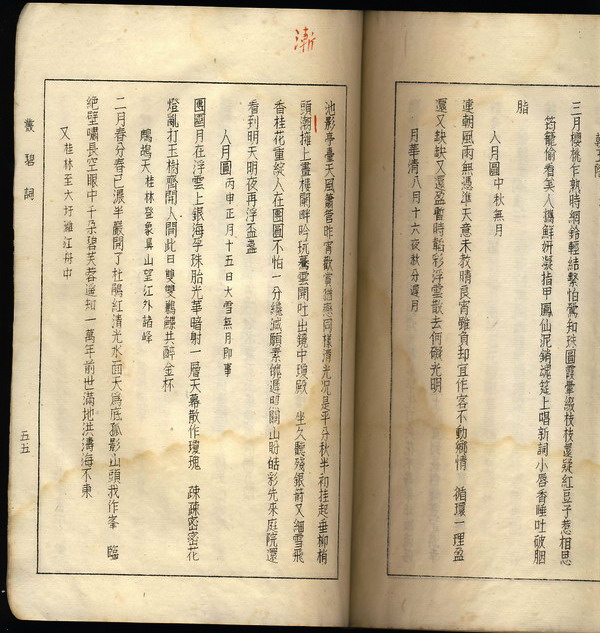 三月櫻桃乍熟時網鈴輕結繫怕鶯知珠圓霞暈綴枝枝還疑紅豆子惹相思
筠籠偷看美人攜鮮妍凝指甲鳳仙泥銷魂筵上唱新詞小唇香唾吐破胭
脂
人月圓中秋無月
連朝風雨無憑準天意未教晴良宵雖負却宜作客不動鄉情 循環一理盈
還又缺缺又還盈暫時韜彩浮雲散去何礙光明
月華清八月十六夜秋分還月
漸
池影亭臺天風簫管昨宵歡賞猶戀同樣清光況是平分秋半初挂起垂柳梢
頭潮擁上畫樓闌畔吟玩驀雲開吐出鏡中瓊殿 坐久聽殘銀箭又細雪飛
香桂花重綻人在團圓不怕一分纔減願素魄遍照關山盼皓彩先來庭院還
看到明天明夜再浮盃盞
人月圓丙申正月十五日大雪無月即事
團圓月在浮雲上銀海孕珠胎光華暗射一層天幕散作瓊瑰 疎疎密密花
燈亂打玉樹齊開人間此日雙雙鸂鶒共醉金杯
鷓鴣天桂林登象鼻山望江外諸峰
二月春分春已濃半巖開了杜鵑紅清光水面天為底孤影山頭我作峯 臨
絕壁嘯長空眼中千朵碧芙蓉遥知一萬年前世滿地洪濤海不東
又桂林至大圩灕江舟中
叢碧詞
五五